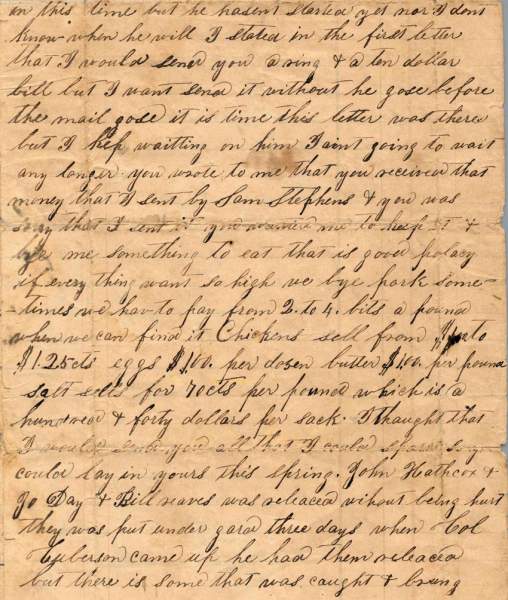 in this time but he hasent started yet nor I dont
know when he will I stated in the first letter
that I would send you a ring & a ten dollar
bill but I want send it without he gose before
the mail gose it is time this letter was there
but I kep waitting on him I aint going to wait
any longer you wrote to me that you received that
money that I sent by Sam Stephens & you was
sory that I sent it you wanted me to keep it &
bye me something to eat that is good polacy
if every thing want so high we bye pork some-
times we hav to pay from 2. to 4. bits a pound
when we can find it Chickens sell from to
$1.25cts eggs $1.00. per dosen butter $1.00. per pound
salt sells for 70cts per pound which is a
hundred & forty dollars per sack. I thaught that
I would send you all that I could spare so you
could lay in yours this spring. John Hathcox &
Jo Day & Bill reaves was releaced without being hurt
they was put under gard three days when Col
Culberson came up he had them releaced
but there is some that was caught & brung